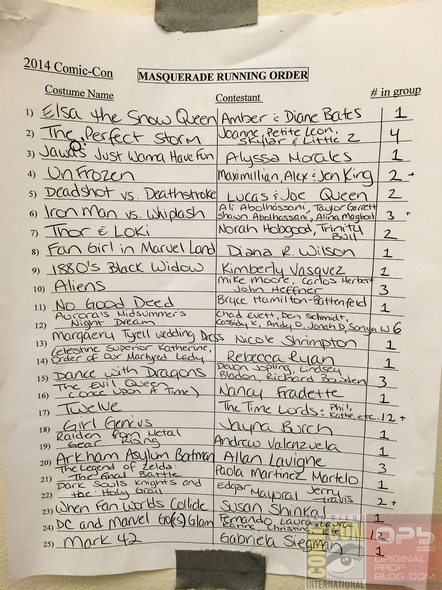 2014 Comic-Con
MASQUERADE RUNNING ORDER
Costume Name Contestant # in group
1) Elsa the Snow Queen Amber & Diane Bates 1
2) The Perfect Storm Joanne, Petite Leon, Skyllar & Little Z 4
3) Jawas Just Wanna Have Fun Alyssa Morales 1
4) UnFrozen Maximillian, Alex & Jen King 2 +
5) Deadshot vs. Deathstroke Lucas & Joe Queen 2
6) Iron Man vs. Whiplash Ali Abolhossani, Taylor Garrett Shawn Abolhossani, Alina 3 +
7) Thor & Loki Norah Hobgood, Trinity Bull 2
8) Fan Girl in Marvel Land Diana R. Wilson 1
9) 1880's Black Widow Kimberly Vasquez 1
10) Aliens Mike Moore, Carlos Herbert John Heffner 3
11) No Good Deed Bryce Hamilton-Battenfeld 1
12) Aurora's Midsummer's Night Dream Chad Evett, Den Schmidt, Cassidy K, Andy O, Jonah D, Sonya W 6
13) Margaery Tyell wedding Dress Nicole Shrimpton 1
14) Celestine Superior Katherine, Order of Our Martyred Lady Rebecca Ryan 1
15) Dance with Dragons Devon Jopling, Lindsey Bladon, Richard 3
16) The Evil Queen (Once Upon A Time) Nancy Fradette 1
17) Twelve The Time Lords: Phil, Kathe, etc.. 12 +
18) Girl Genius Jayna Burch 1
19) Raiden from Metal Gear Rising Andrew Valenzuela 1
20) Arkham Asylum Batman Allan Lavigne 1
21) The Legend of Zelda: The Final Battle Paola Martinez Martelo 3
22) Dark Souls Knights and the Holy Grail Edgar Mayoral Jerry Travis 2 +
23) When Fan Worlds Collide Susan Shinka 1
24) DC and Marvel Go(es) Glam Fernando, Laura, Laura Christine Etc 12
25) Mark 42 Gabriela Siegman 1
SAN DIEGO
COMIC CON
INTERNATIONAL
OPB
ORIGINAL
PROP
BLOG.COM